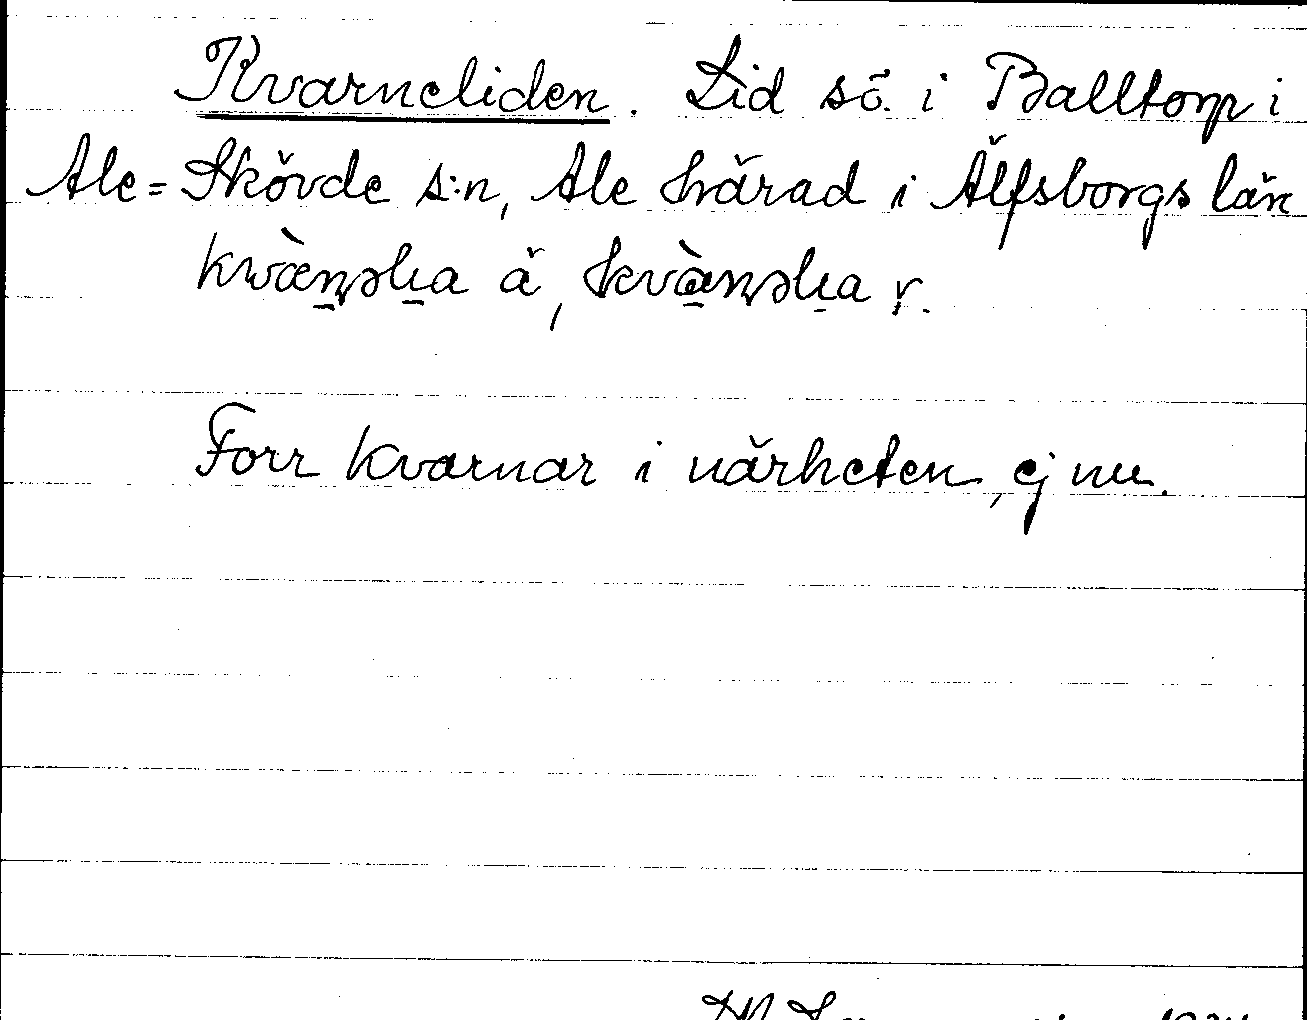 Kvarneliden. Lid sö. i Balltorp i
Ale=Skövde s:n, Ale härad i Älfsborgs län
Forr kvarnar i närheten, ej nu.